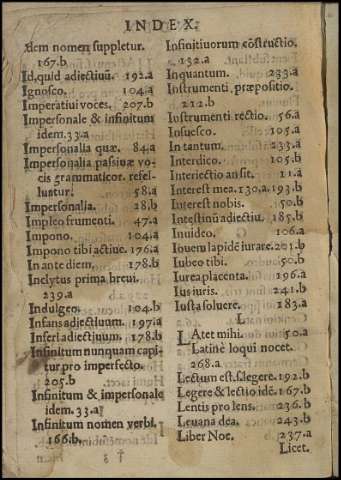 INDEX.
dem nomen suppletur.
167.b
Id, quid adiectiuũ. 192.a
Ignosco. 104.a
Imperatiui voces. 207.b
Impersonale & infinitum
idem. 33.a
Impersonalia quæ. 84.a
Impersonalia passiuæ vo-
cis grammaticor. refel-
luntur. 58.a
Impersonalia. 28.b
Impleo frumenti. 47.a
Impono. 104.a
Impono tibi actiue. 176.a
In ante diem. 178.b
Inclytus prima breui.
239.a
Indulgeo. 104.b
Infans adiectiuum. 197.a
Inferi adiectiuum. 178.b
Infinitum nunquam capi-
tur pro imperfecto.
205.b
Infinitum & impersonale
idem. 33.a
Infinitum nomen verbi.
166.b.
Infinitiuorum cõstructio.
132.a
Inquantum. 233.a
Instrumenti, præpositio.
212.b
Instrumenti rectio. 56.a
Insuesco. 105.a
In tantum. 233.a
Interdico. 105.b
Interiectio an sit. 11.a
Interest mea. 130.a. 193.b
Interest nobis. 50.b
Intestinũ adiectiu. 185.b
Inuideo. 106.a
Iouem lapidẽ iurare. 201.b
Iubeo tibi. 50.b
Iurea placenta. 196.a
Ius iuris. 241.b
Iusta soluere. 183.a
L
LAtet mihi. 50.a
Latinè loqui nocet.
268.a
Lectum est. s. legere. 192.b
Legere & lectio idẽ. 167.b
Lentis pro lens. 236.b
Leuana dea. 243.b
Liber Noe. 237.a
Licet.